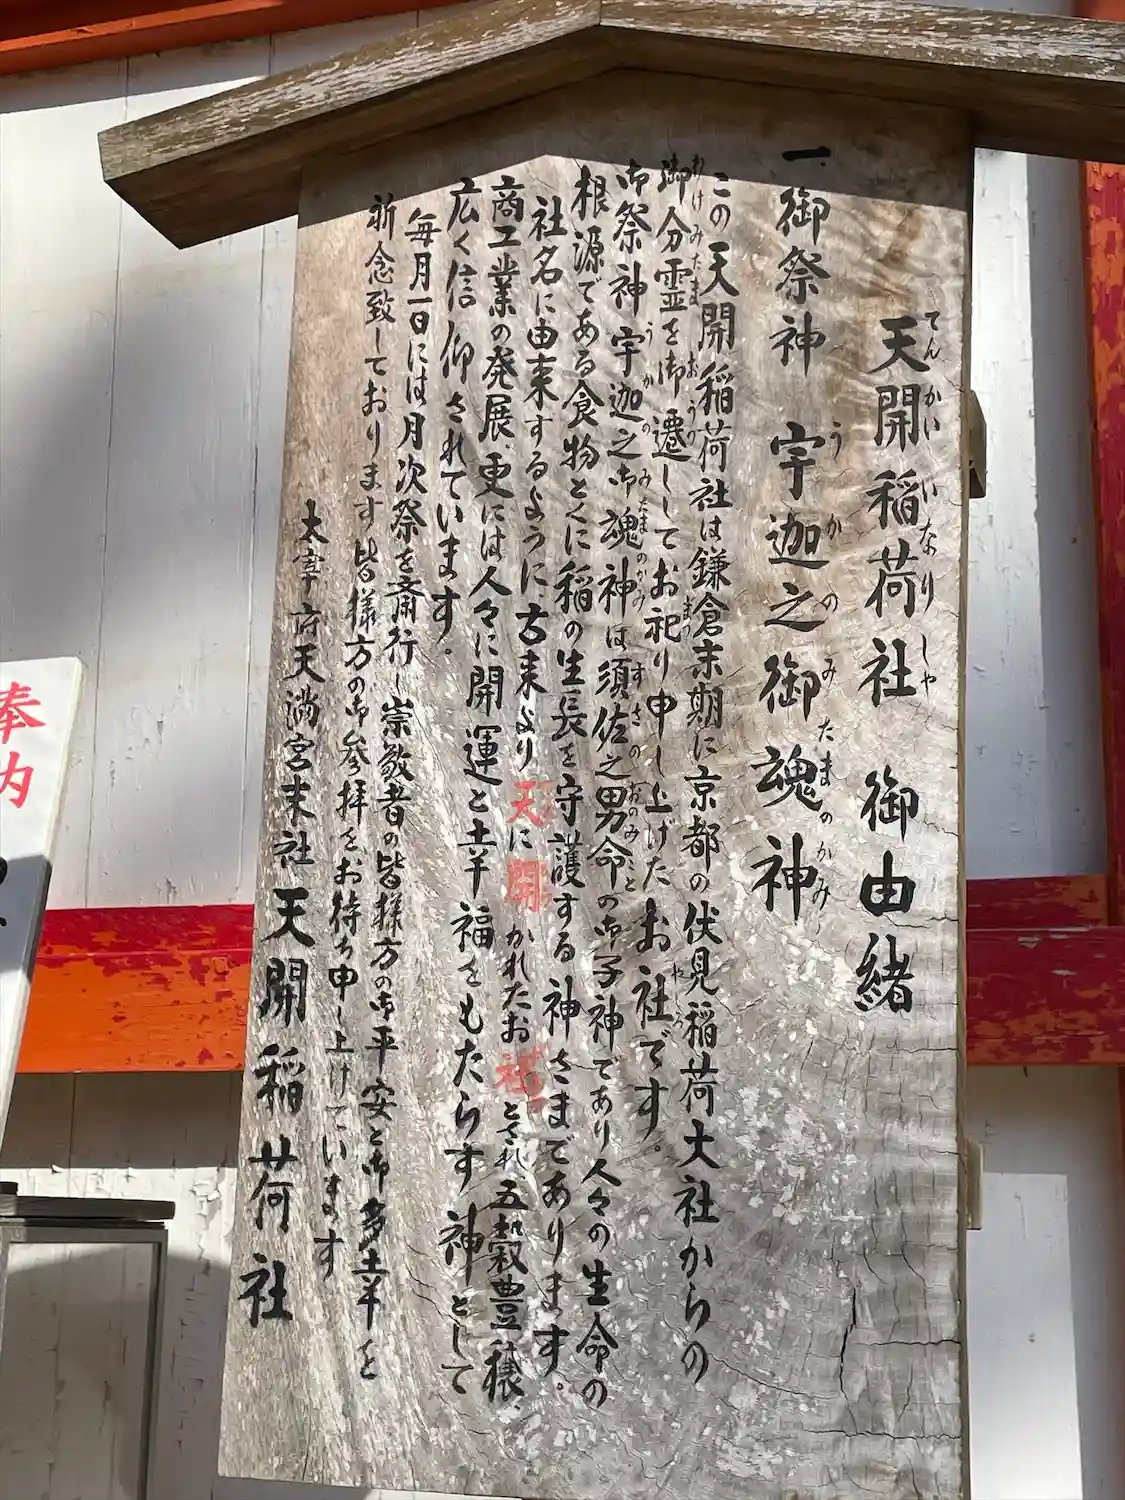 天開稲荷社 御由緒
てんかい いなり しゃ
一、御祭神 宇迦之御魂神
うかのみたまのかみ
この天開稲荷社は鎌倉末期に京都の伏見稲荷大社からの
まつ
御分霊を御遷ししてお祀り申し上げたお社です。
わけみたま おうつ やしろ
御祭神宇迦之御魂神は須佐之男命の御子神であり人々の生命の
うかのみたまのかみ すさのおのみこと
根源である食物とくに稲の生長を守護する神さまであります。
社名に由来するように古来より天に開かれたお社とされ五穀豊穣、
商工業の発展、更には人々に開運と幸福をもたらす神として
広く信仰されています。
毎月一日には月次祭を斎行し崇敬者の皆様方の御平安と御多幸を
祈念致しております皆様方の御参拝をお待ち申し上げています
太宰府天満宮末社天開稲荷社
奉納